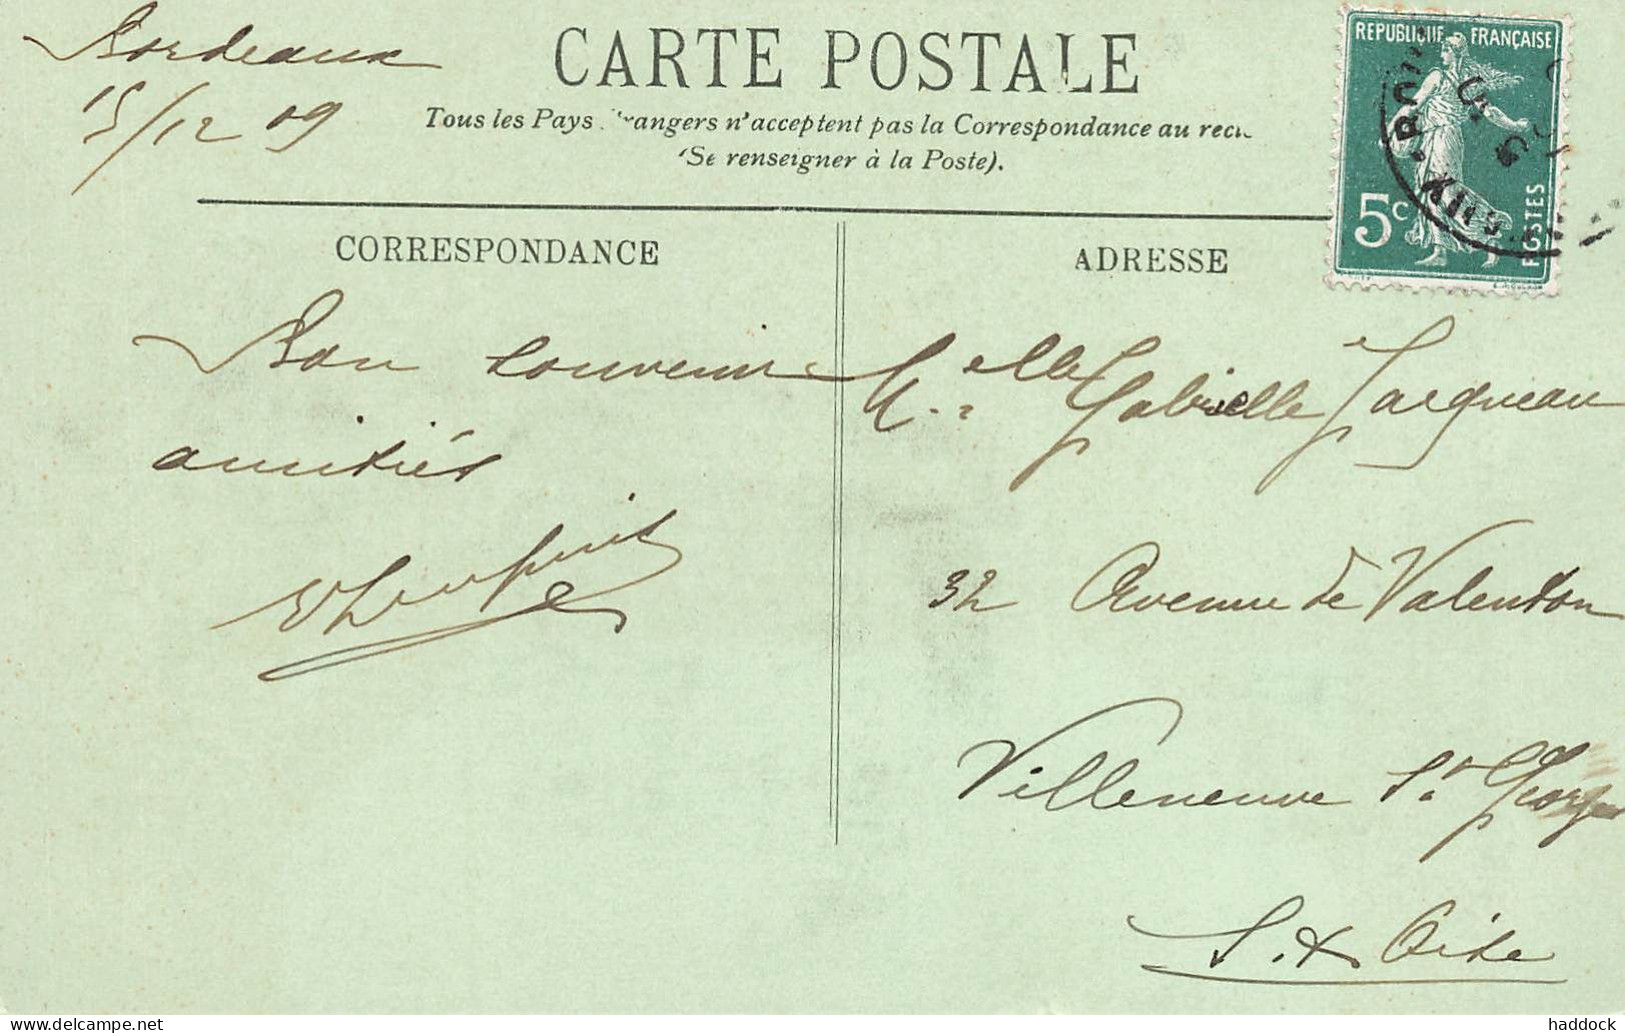 Bordeaux
15/12 09
CARTE POSTALE
Tous les Pays Étrangers n'acceptent pas la Correspondance au recto
(Se renseigner à la Poste).
REPUBLIQUE FRANÇAISE
5c
POSTES
CORRESPONDANCE
ADRESSE
Bon souvenir
amitiés
Melle Gabrielle
32 Avenue de Valenton
Villeneuve St Georges
S. & Oise
haddock